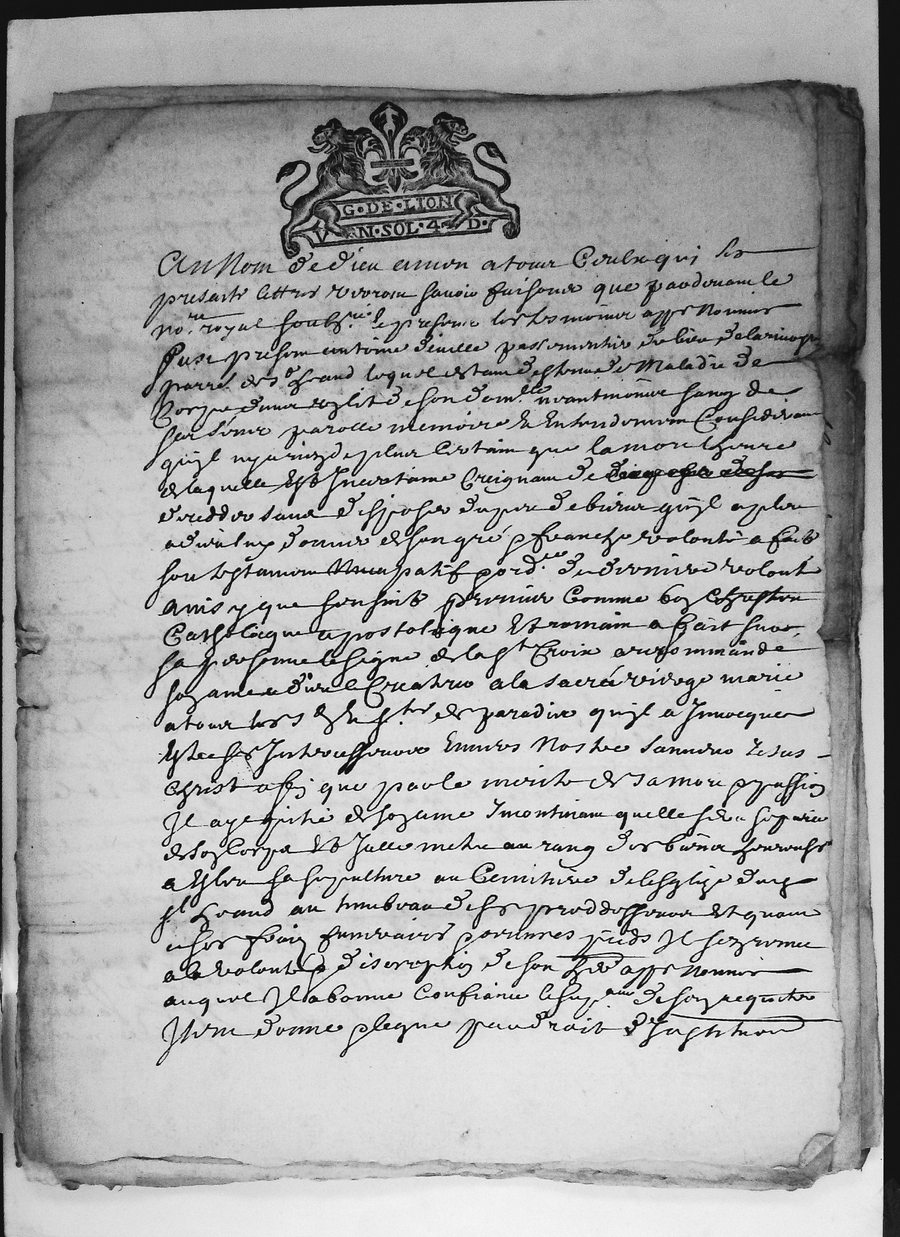 G·DE·LION
VN·SOL·4·D·
Au Nom de dieu amen a tous Ceulx qui Les
presantes lettres verront savoir faisons que pardevant le
no.re royal soubz.né e presens les tesmoins appres Nommes
fust present antoine passementier du lieu de
parr. de s.t lequel estant destenu de Maladie de
Corps dans un lit de son dom.lle neantmoings sang de
ses sens parolle memoire Et Entendement Considerant
quil ny a rien de plus Certain que la mort lheure
de laquelle Est Incertaine Creignant de
decedder sans disposer du peu de biens quil a pleu
a dieu luy donner de son gré p franche volonté a fait
son testament Nuncupatif p ord.ce de derniere volonté
ainsy que sensuit premier Comme bon Chrestien
Catholicque apostolicque Et romain a fait sur
sa personne le signe de la s.te Croix a recommandé
son ame a dieu le Createur a la sacrée vierge marie
a tous les s.ts Et s.tes de paradis quil a Invocques
Estre ses Intercesseurs Envers Nostre sauveur Jesus
Christ affin que par le merite de sa mort p passion
Il aye pitié de son ame Incontinant quelle sera separée
de son Corps Et Icelle metre au rang des biens heureux
a Esleu sa sepulture au Cemitiere de lesglize dud
s.t au tumbeau de ses predecesseurs Et quant
a ses frais funeraires Il sen remet
a la volonté p discretion de son her. appres Nommé
auquel Il a bonne Confiance
Item donne p legue par droit d'Institution